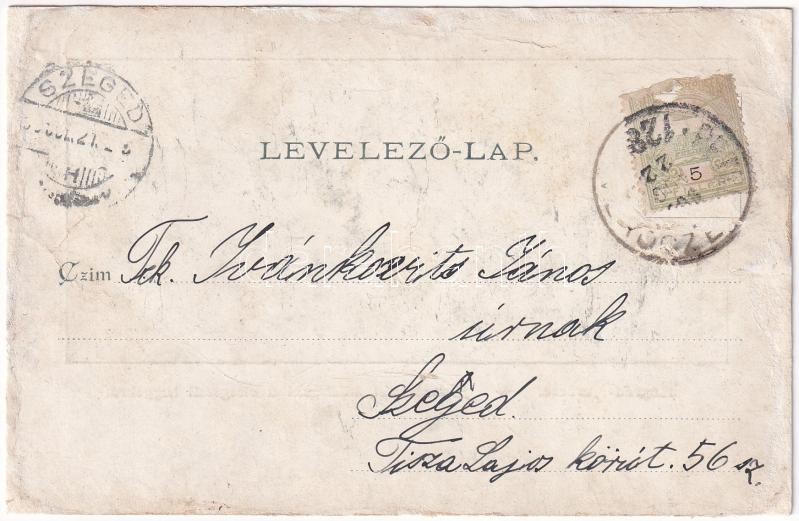 SZEGED
LEVELEZŐ-LAP.
5
Czim Tek. Ivánkovits János
úrnak
Szeged.
Tisza Lajos körút. 56 sz.